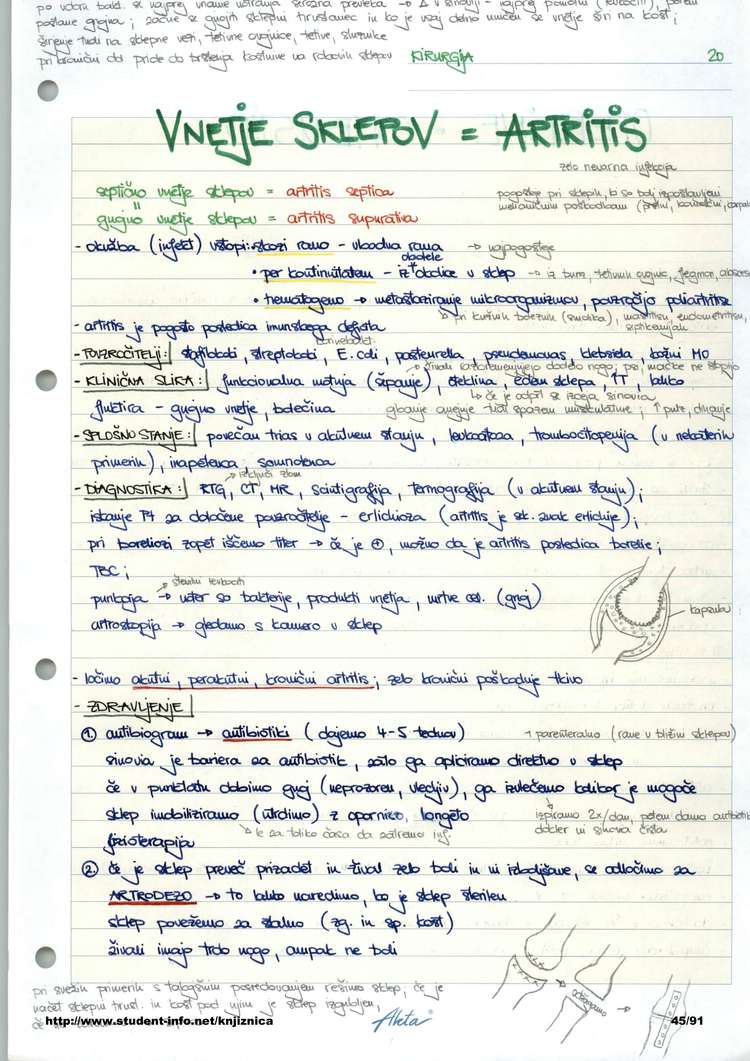 po vdoru bakt. se najprej vname
postane gnojna ; začne se gnojiti sklepni hrustanec in ko je vsaj delno uničen se vnetje širi na kost ;
širjenje tudi na sklepne vezi, tetivne ovojnice, tetive, sluznike
pri kronični obl. pride do brstenja kostnine na robovih sklepov
KIRURGIJA
20
VNETJE SKLEPOV = ARTRITIS
zelo nevarna infekcija
septično vnetje sklepov = artritis septica
=
gnojno vnetje sklepov = artritis supurativa
pogosteje pri sklepih, ki so bolj izpostavljeni
mehaničnim poškodbam
- okužba (infekt) vstopi: skozi rano – vbodna rana → najpogosteje
• per kontinuitatem – iz obolele okolice v sklep → iz burz, tetivnih ovojnic, flegmon, abscesov
• hematogeno → metastaziranje mikroorganizmov, povzročijo poliartritise
pri kužnih boleznih (smolika), mastitisu, endometritisu,
septikemijah
- artritis je pogosto posledica imunskega defekta
- POVZROČITELJI: stafilokoki, streptokoki, E. coli, pasteurella, pseudomonas, klebsiela, kožni MO
→ živali razbremenjujejo obolelo nogo; psi, mačke ne stopijo
- KLINIČNA SLIKA: funkcionalna motnja (šepanje), oteklina, edem sklepa, ↑T, lahko
↳ če je odprt se izceja sinovia
fluktuira – gnojno vnetje, bolečina
gibanje omejuje tudi spazem muskulature ; ↑ pulz, dihanje
- SPLOŠNO STANJE: povečan trias v akutnem stanju, levkocitoza, trombocitopenija (v nekaterih
primerih), inapetenca, somnolenca
→ izključi zlom
- DIAGNOSTIKA: RTG, CT, MR, scintigrafija, termografija (v akutnem stanju) ;
iskanje PA za določene povzročitelje – erlichioza (artritis je sk. znak erlichije) ;
pri boreliozi zopet iščemo titer → če je ⊕, možno da je artritis posledica borelie ;
TBC ;
→ številni levkociti
punkcija → vder so bakterije, produkti vnetja, mrtve cel. (gnoj)
kapsula
artroskopija → gledamo s kamero v sklep
- ločimo akutni, perakutni, kronični artritis ; zelo kronični poškoduje tkivo
- ZDRAVLJENJE
1. antibiogram → antibiotiki (dajemo 4-5 tednov)
→ parenteralno (rane v bližini sklepov)
sinovia je bariera za antibiotik, zato ga apliciramo direktno v sklep
če v punktatu dobimo gnoj (neprozoren, vlečljiv), ga izvlečemo kolikor je mogoče
sklep imobiliziramo (utrdimo) z opornico, longeto
izpiramo 2x/dan, potem damo antibiotik
dokler ni sinovia čista
↳ le za toliko časa da zatremo inf.
fizioterapija
2. če je sklep preveč prizadet in žival zelo boli in ni izboljšave, se odločimo za
ARTRODEZO → to lahko naredimo, ko je sklep sterilen
sklep povežemo za stalno (zg. in sp. kost)
živali imajo trdo nogo, ampak ne boli
odžagamo
pri svežih primerih s takojšnim posredovanjem rešimo sklep, če je
načet sklepni hrust. in kost pod njim je sklep izgubljen,
http://www.student-info.net/knjiznica
Aketa
45/91